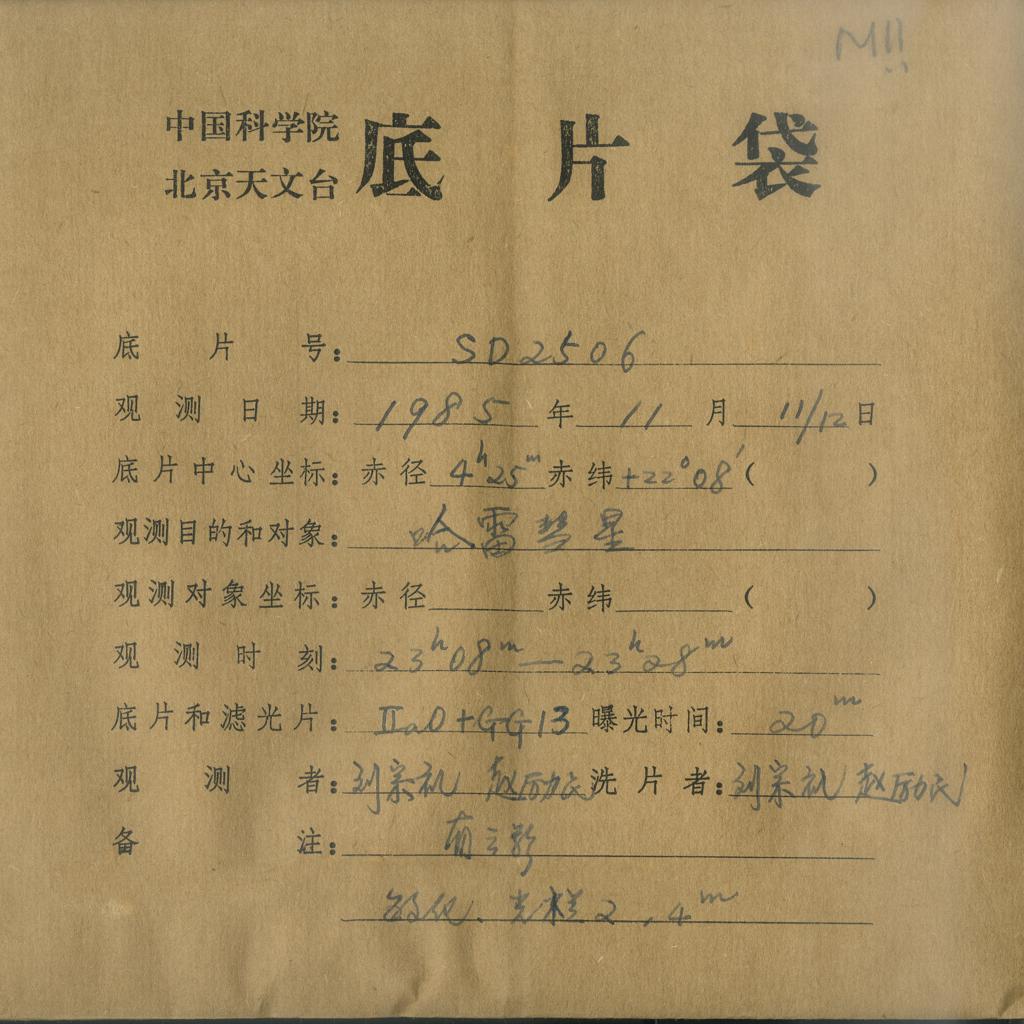 M!!
中国科学院
北京天文台
底片袋
底片号: SD2506
观测日期: 1985年11月11/12日
底片中心坐标: 赤径 4h25m 赤纬 +22°08′ ( )
观测目的和对象: 哈雷彗星
观测对象坐标: 赤径 赤纬 ( )
观测时刻: 23h08m—23h28m
底片和滤光片: IIaO+GG13 曝光时间: 20m
观测者: 刘宗礼 赵励民 洗片者: 刘宗礼 赵励民
备注: 有云影
敏化、光栏2,4m